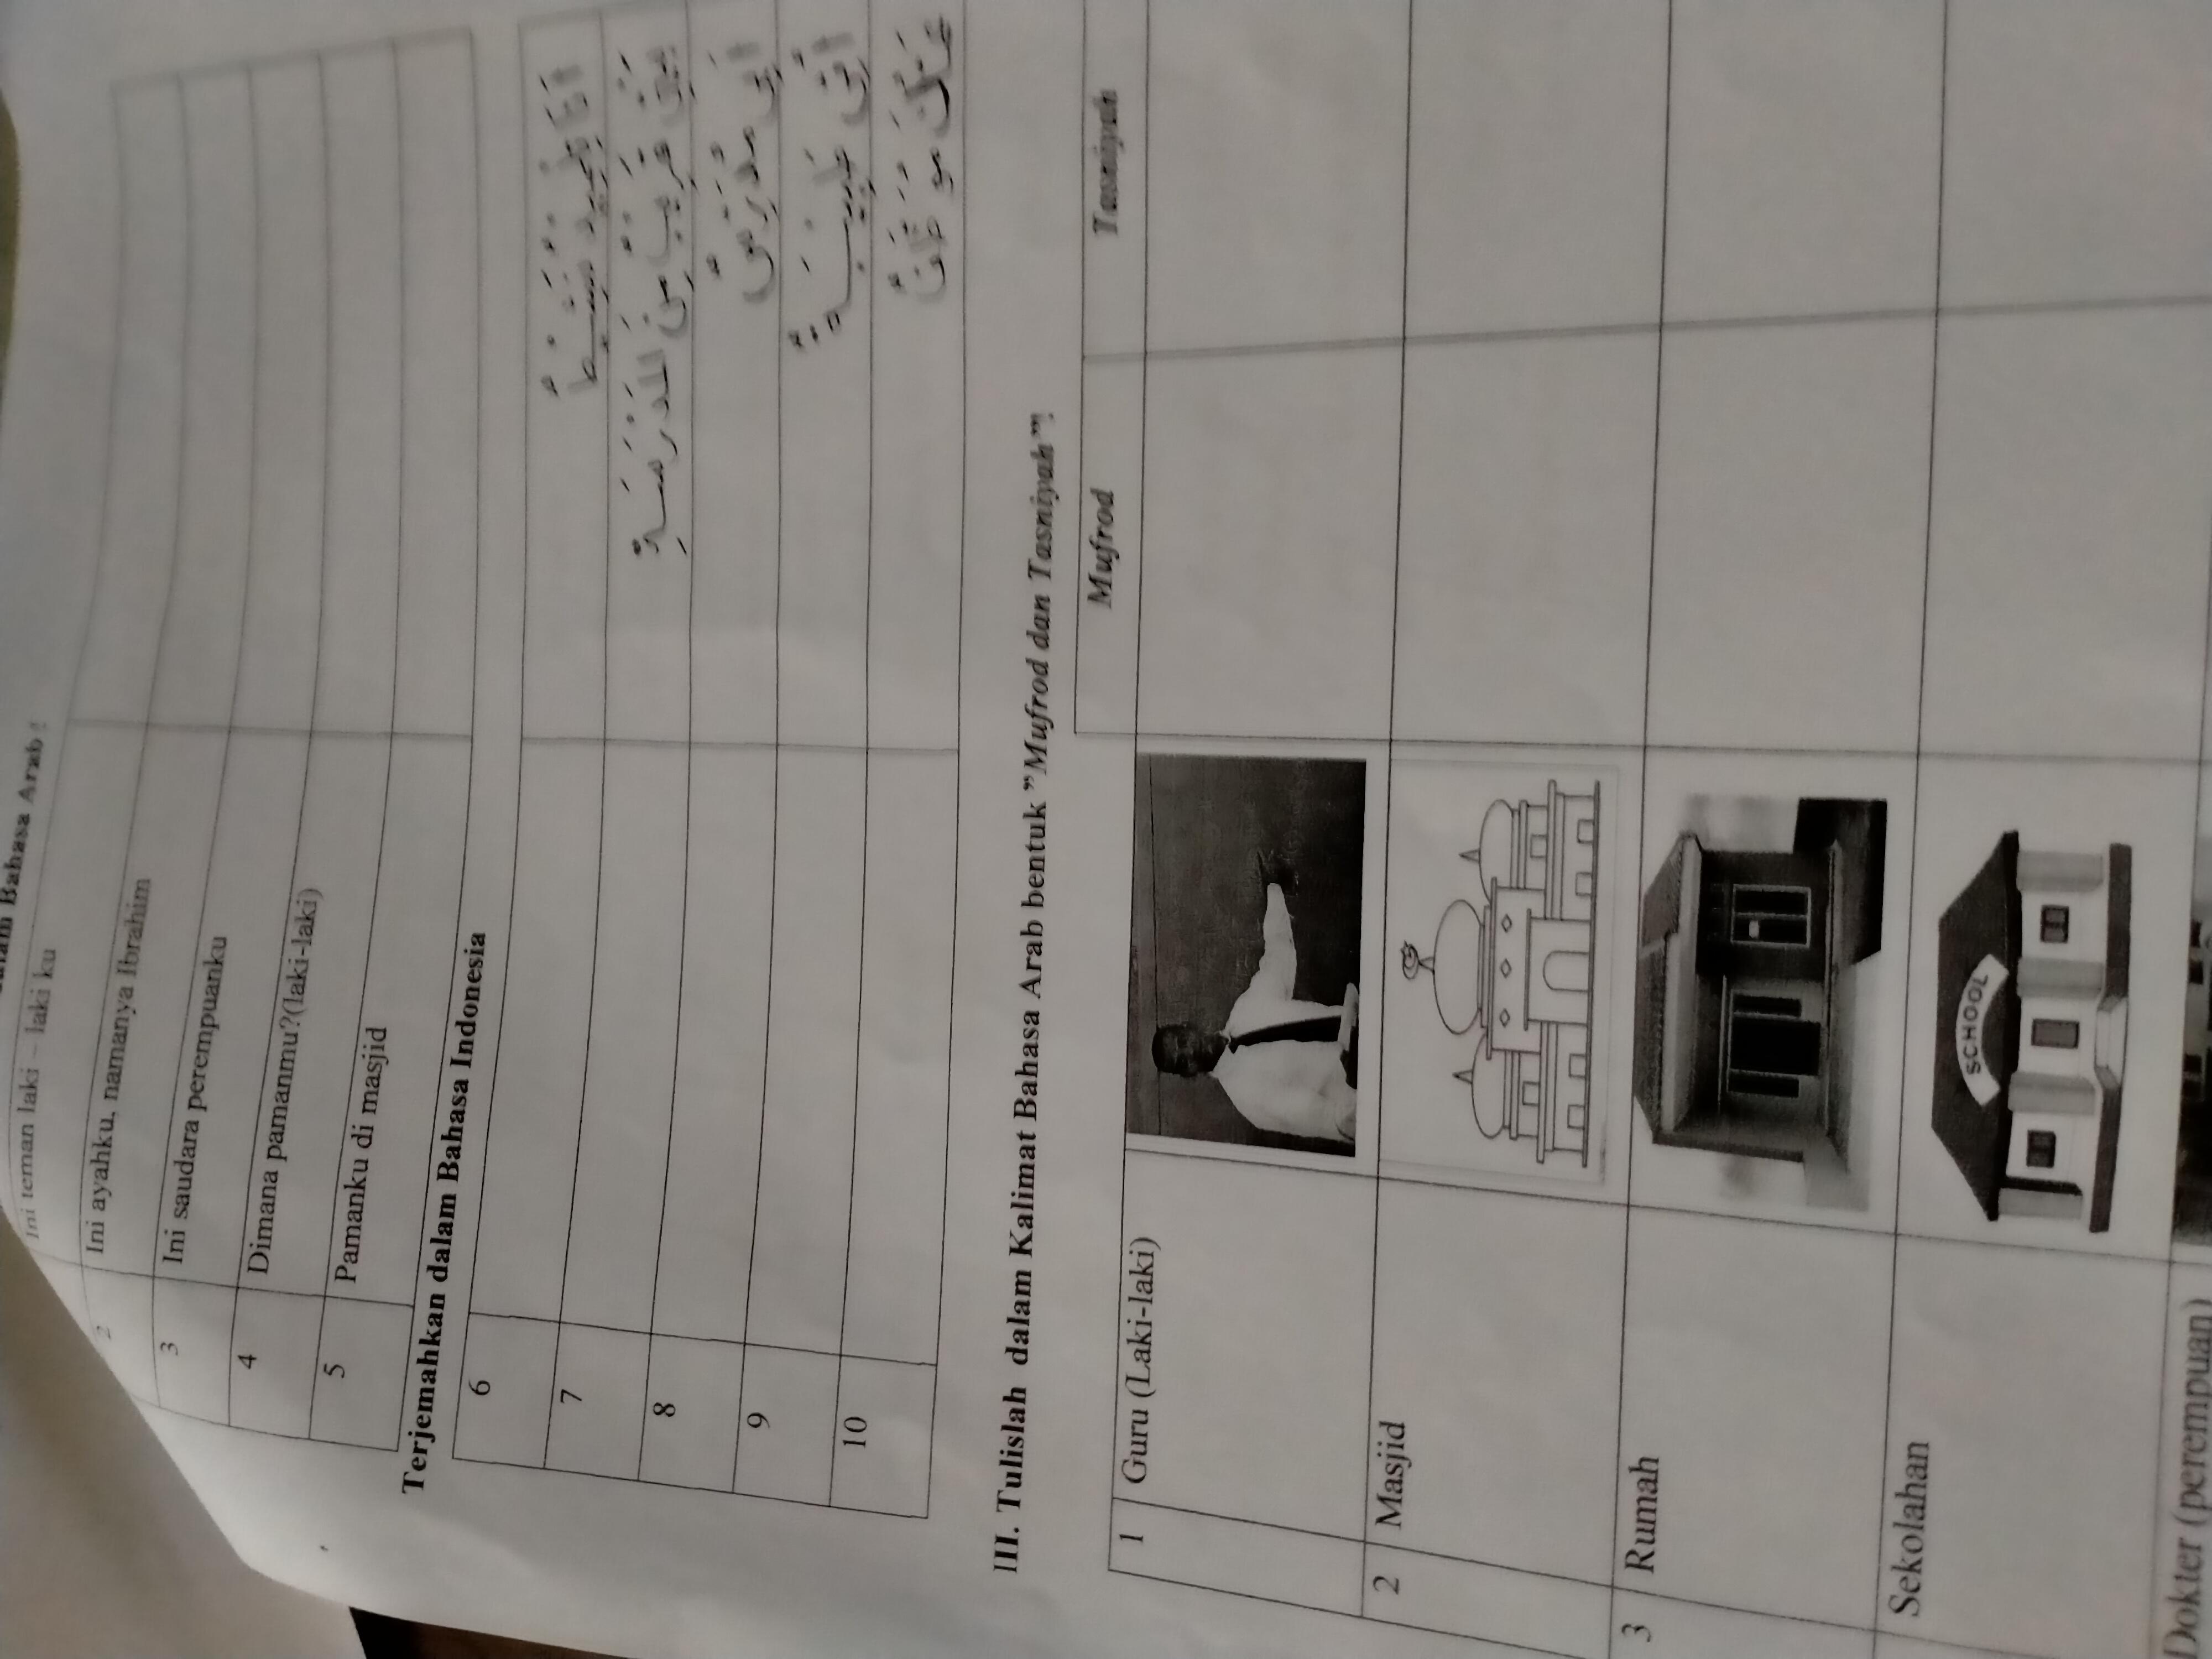 Bahasa Arab !
Ini teman laki – laki ku
2 Ini ayahku, namanya Ibrahim
3 Ini saudara perempuanku
4 Dimana pamanmu?(laki-laki)
5 Pamanku di masjid
Terjemahkan dalam Bahasa Indonesia
6 أَنَا تِلْمِيْذٌ نَشِيْطٌ
7 بَيْتِيْ قَرِيْبٌ مِنَ المَدْرَسَةِ
8 أَبِي مُدَرِّسٌ
9 أُمِّي طَبِيْبَةٌ
10 عَمُّكَ مُوَظَّفٌ
III. Tulislah dalam Kalimat Bahasa Arab bentuk ”Mufrod dan Tasniyah”!
Mufrod Tasniyah
1 Guru (Laki-laki)
2 Masjid
3 Rumah
Sekolahan
SCHOOL
Dokter (perempuan)